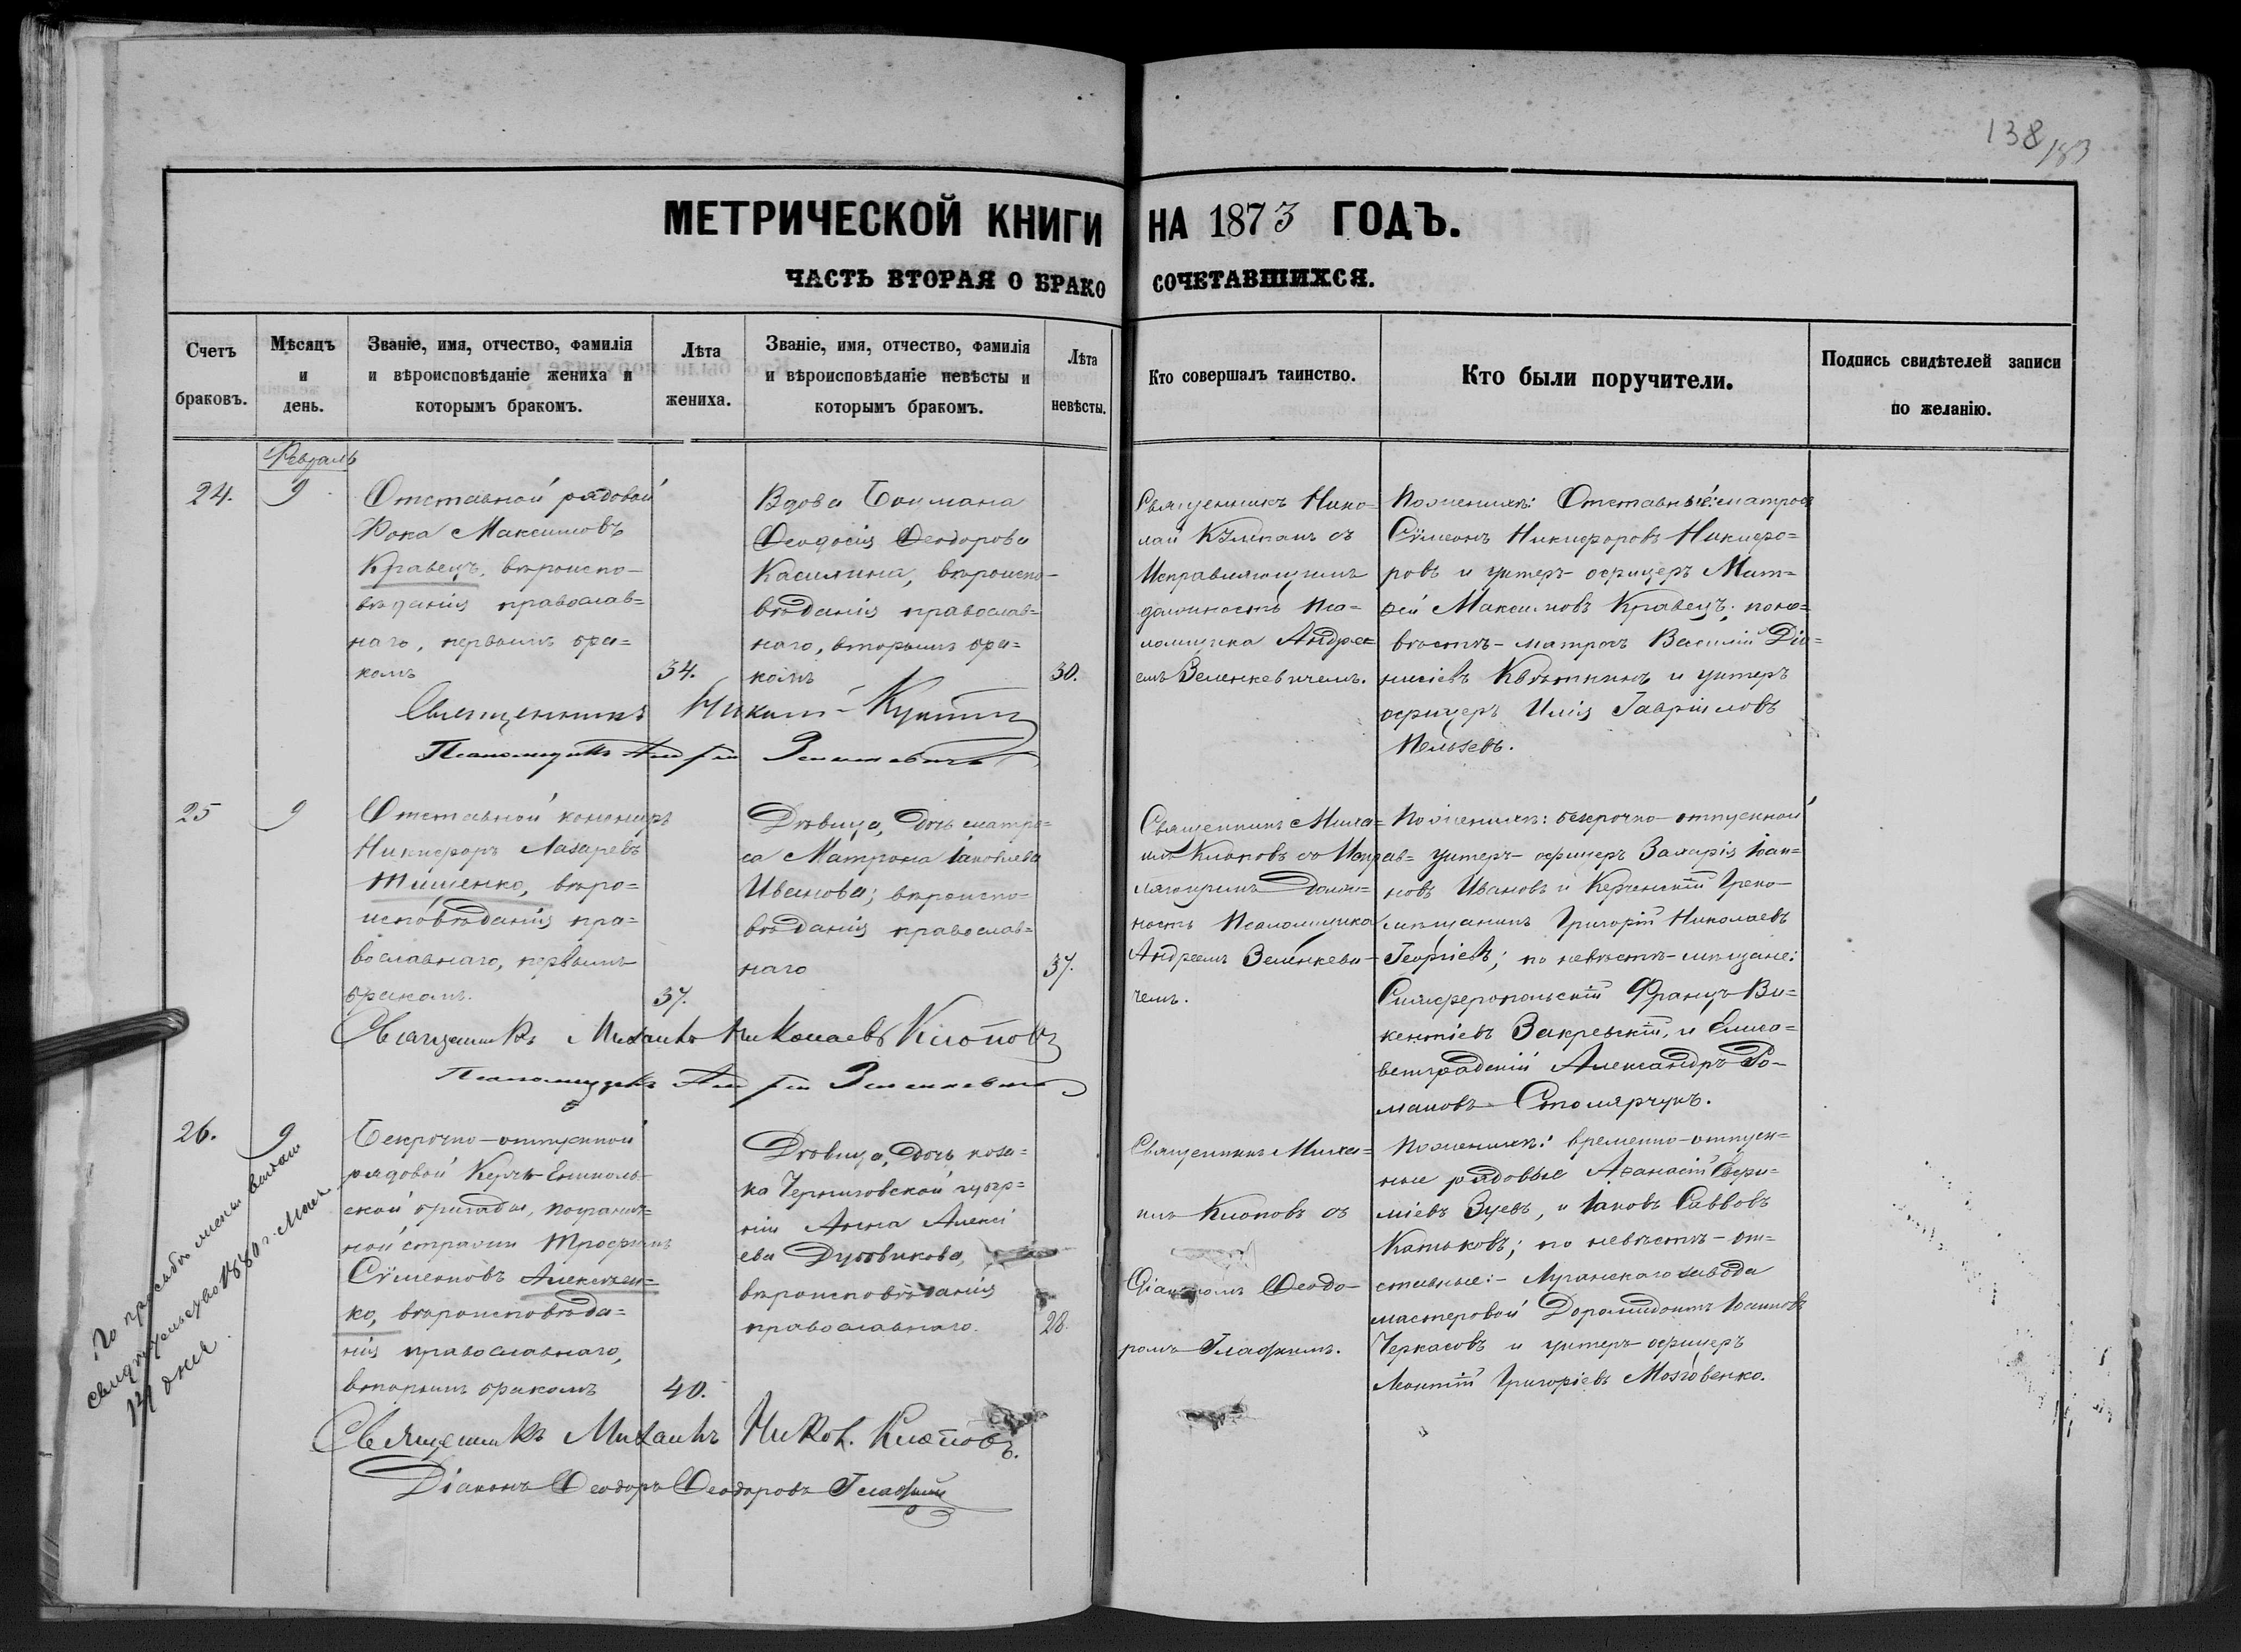 138
183
МЕТРИЧЕСКОЙ КНИГИ НА 1873 ГОДЪ.
ЧАСТЬ ВТОРАЯ О БРАКОСОЧЕТАВШИХСЯ.
Счетъ
браковъ.
Мѣсяцъ
и
день.
Званіе, имя, отчество, фамилія
и вѣроисповѣданіе жениха и
которымъ бракомъ.
Лѣта
жениха.
Званіе, имя, отчество, фамилія
и вѣроисповѣданіе невѣсты и
которымъ бракомъ.
Лѣта
невѣсты.
Кто совершалъ таинство.
Кто были поручители.
Подпись свидѣтелей записи
по желанію.
Февраль
24.
9
Отставной рядовой
Фока Максимовъ
Кравецъ, вѣроиспо-
вѣданія православ=
наго, первымъ бра=
комъ
34.
Вдова Боцмана
Ѳеодосія Ѳеодорова
Касилина, вѣроиспо-
вѣданія православ=
наго, вторымъ бра=
комъ
30.
Священникъ Нико=
лай съ
Исправляющимъ
должность Пса=
ломщика Андре=
емъ Зеленкевичемъ.
По женихѣ: Отставные: матросъ
Сѵмеонъ Никифоровъ Никифо=
ровъ и унтеръ-офицеръ Мат=
ѳей Максимовъ Кравецъ; по не=
вѣстѣ - матросъ Василій Діо=
нисіевъ Квѣткинъ и унтеръ
офицеръ Илія Гавріиловъ
Священникъ
Псаломщикъ Андрей Зеленкевичъ
25
9
Отставной канониръ
Никифоръ Лазаревъ
Тищенко, вѣро=
исповѣданія пра=
вославнаго, первымъ
бракомъ.
37.
Дѣвица, дочь матро=
са Матрона Іаковлева
Иванова; вѣроиспо=
вѣданія православ=
наго
37.
Священникъ Миха=
илъ Клоповъ съ Исправ=
ляющимъ долж=
ность Псаломщика
Андреемъ Зеленкеви-
чемъ.
По женихѣ: безсрочно-отпускной
унтеръ-офицеръ Захарія Іоан=
новъ Ивановъ и Керченскій Греко-
мѣщанинъ Григорій Николаевъ
Георгіевъ; по невѣстѣ - мѣщане:
Симферопольскій Францъ Ви=
кентіевъ Закревскій, и Елиса=
ветградскій Александръ Ро-
мановъ Столярчукъ.
Священникъ Михаилъ Николаевъ Клоповъ
Псаломщикъ Андрей Зеленкевичъ
26.
9
Безсрочно-отпускной
рядовой Керчь-Ениколь-
ской бригады, погранич=
ной стражи Трофимъ
Сѵмеоновъ Алексѣен=
ко, вѣроисповѣда=
нія православнаго,
вторымъ бракомъ
40.
Дѣвица, дочь коза=
ка Черниговской губер=
ніи Анна Алексі
ева Дубовикова,
вѣроисповѣданія
православнаго.
28
Священникъ Миха=
илъ Клоповъ съ
Діакономъ Ѳеодо-
ромъ Глафкимъ.
По женихѣ: временно-отпуск=
ные рядовые Аѳанасій Евфи=
міевъ Зуевъ, и Іаковъ Савовъ
Катьковъ; по невѣстѣ - от=
ставные: - Луганскаго завода
мастеровой Доримидонтъ Іоанновъ
Черкасовъ и унтеръ-офицеръ
Леонтій Григоріевъ Мозговенко.
Священникъ Михаилъ Никол. Клоповъ.
Діаконъ Ѳеодоръ Ѳеодоровъ Глафкій
По просьбѣ выдано
свидѣтельство 1880 г.
дня.